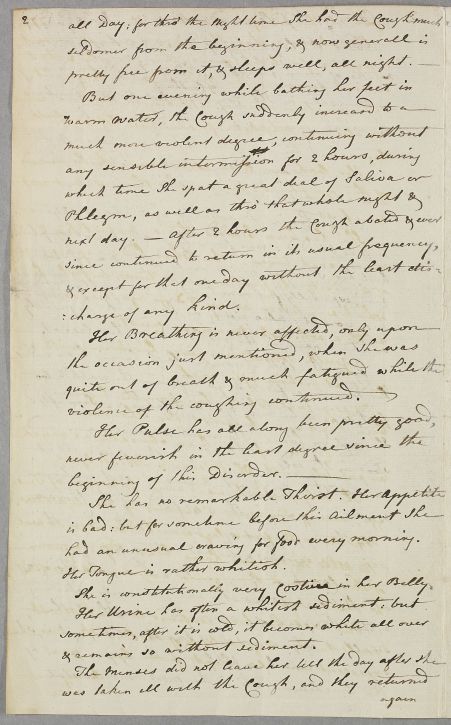 2
all Day: for thro' the night time She had the Cough much
seldomer from the beginning, & now generall is
pretty free from it, & sleeps well, all night. —
But one evening while bathing her feet in
warm water, the Cough suddenly increased to a
much more violent degree, continuing without
any sensible intermission for 2 hours, during
which time She spat a great deal of Saliva or
Phlegm, as well as thro' that whole night &
next day. — After 2 hours the Cough abated & ever
since continued to return in its usual frequency,
& except for that one day without the least dis=
:charge of any kind.
Her Breathing is never affected, only upon
the occasion just mentioned, when She was
quite out of breath & much fatigued while the
violence of the coughing continued.
Her Pulse has all along been pretty good,
never feverish in the least degree since the
beginning of this Disorder. —
She has no remarkable Thirst. Her Appetite
is bad: but for sometime before this Ailment She
had an unusual craving for food every morning.
Her Tongue is rather whitish.
She is constitutionally very Costive in her Belly.
Her Urine has often a whitish sediment: but
sometimes, after it is cold, it becomes white all over
& remains so without sediment.
The Menses did not leave her till the day after She
was taken ill with the Cough, and they returned
again